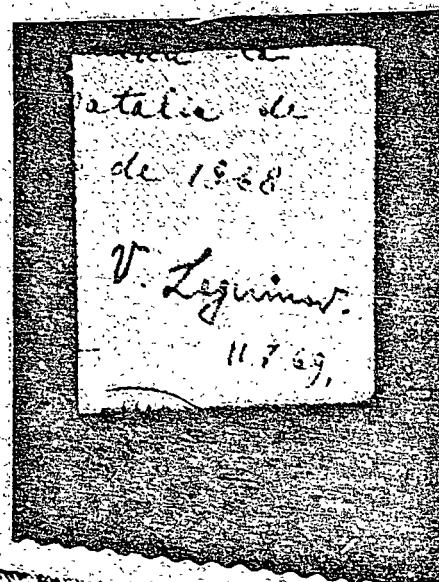 la
atalia de
de 1968
V. Loguinov.
11.7.69,